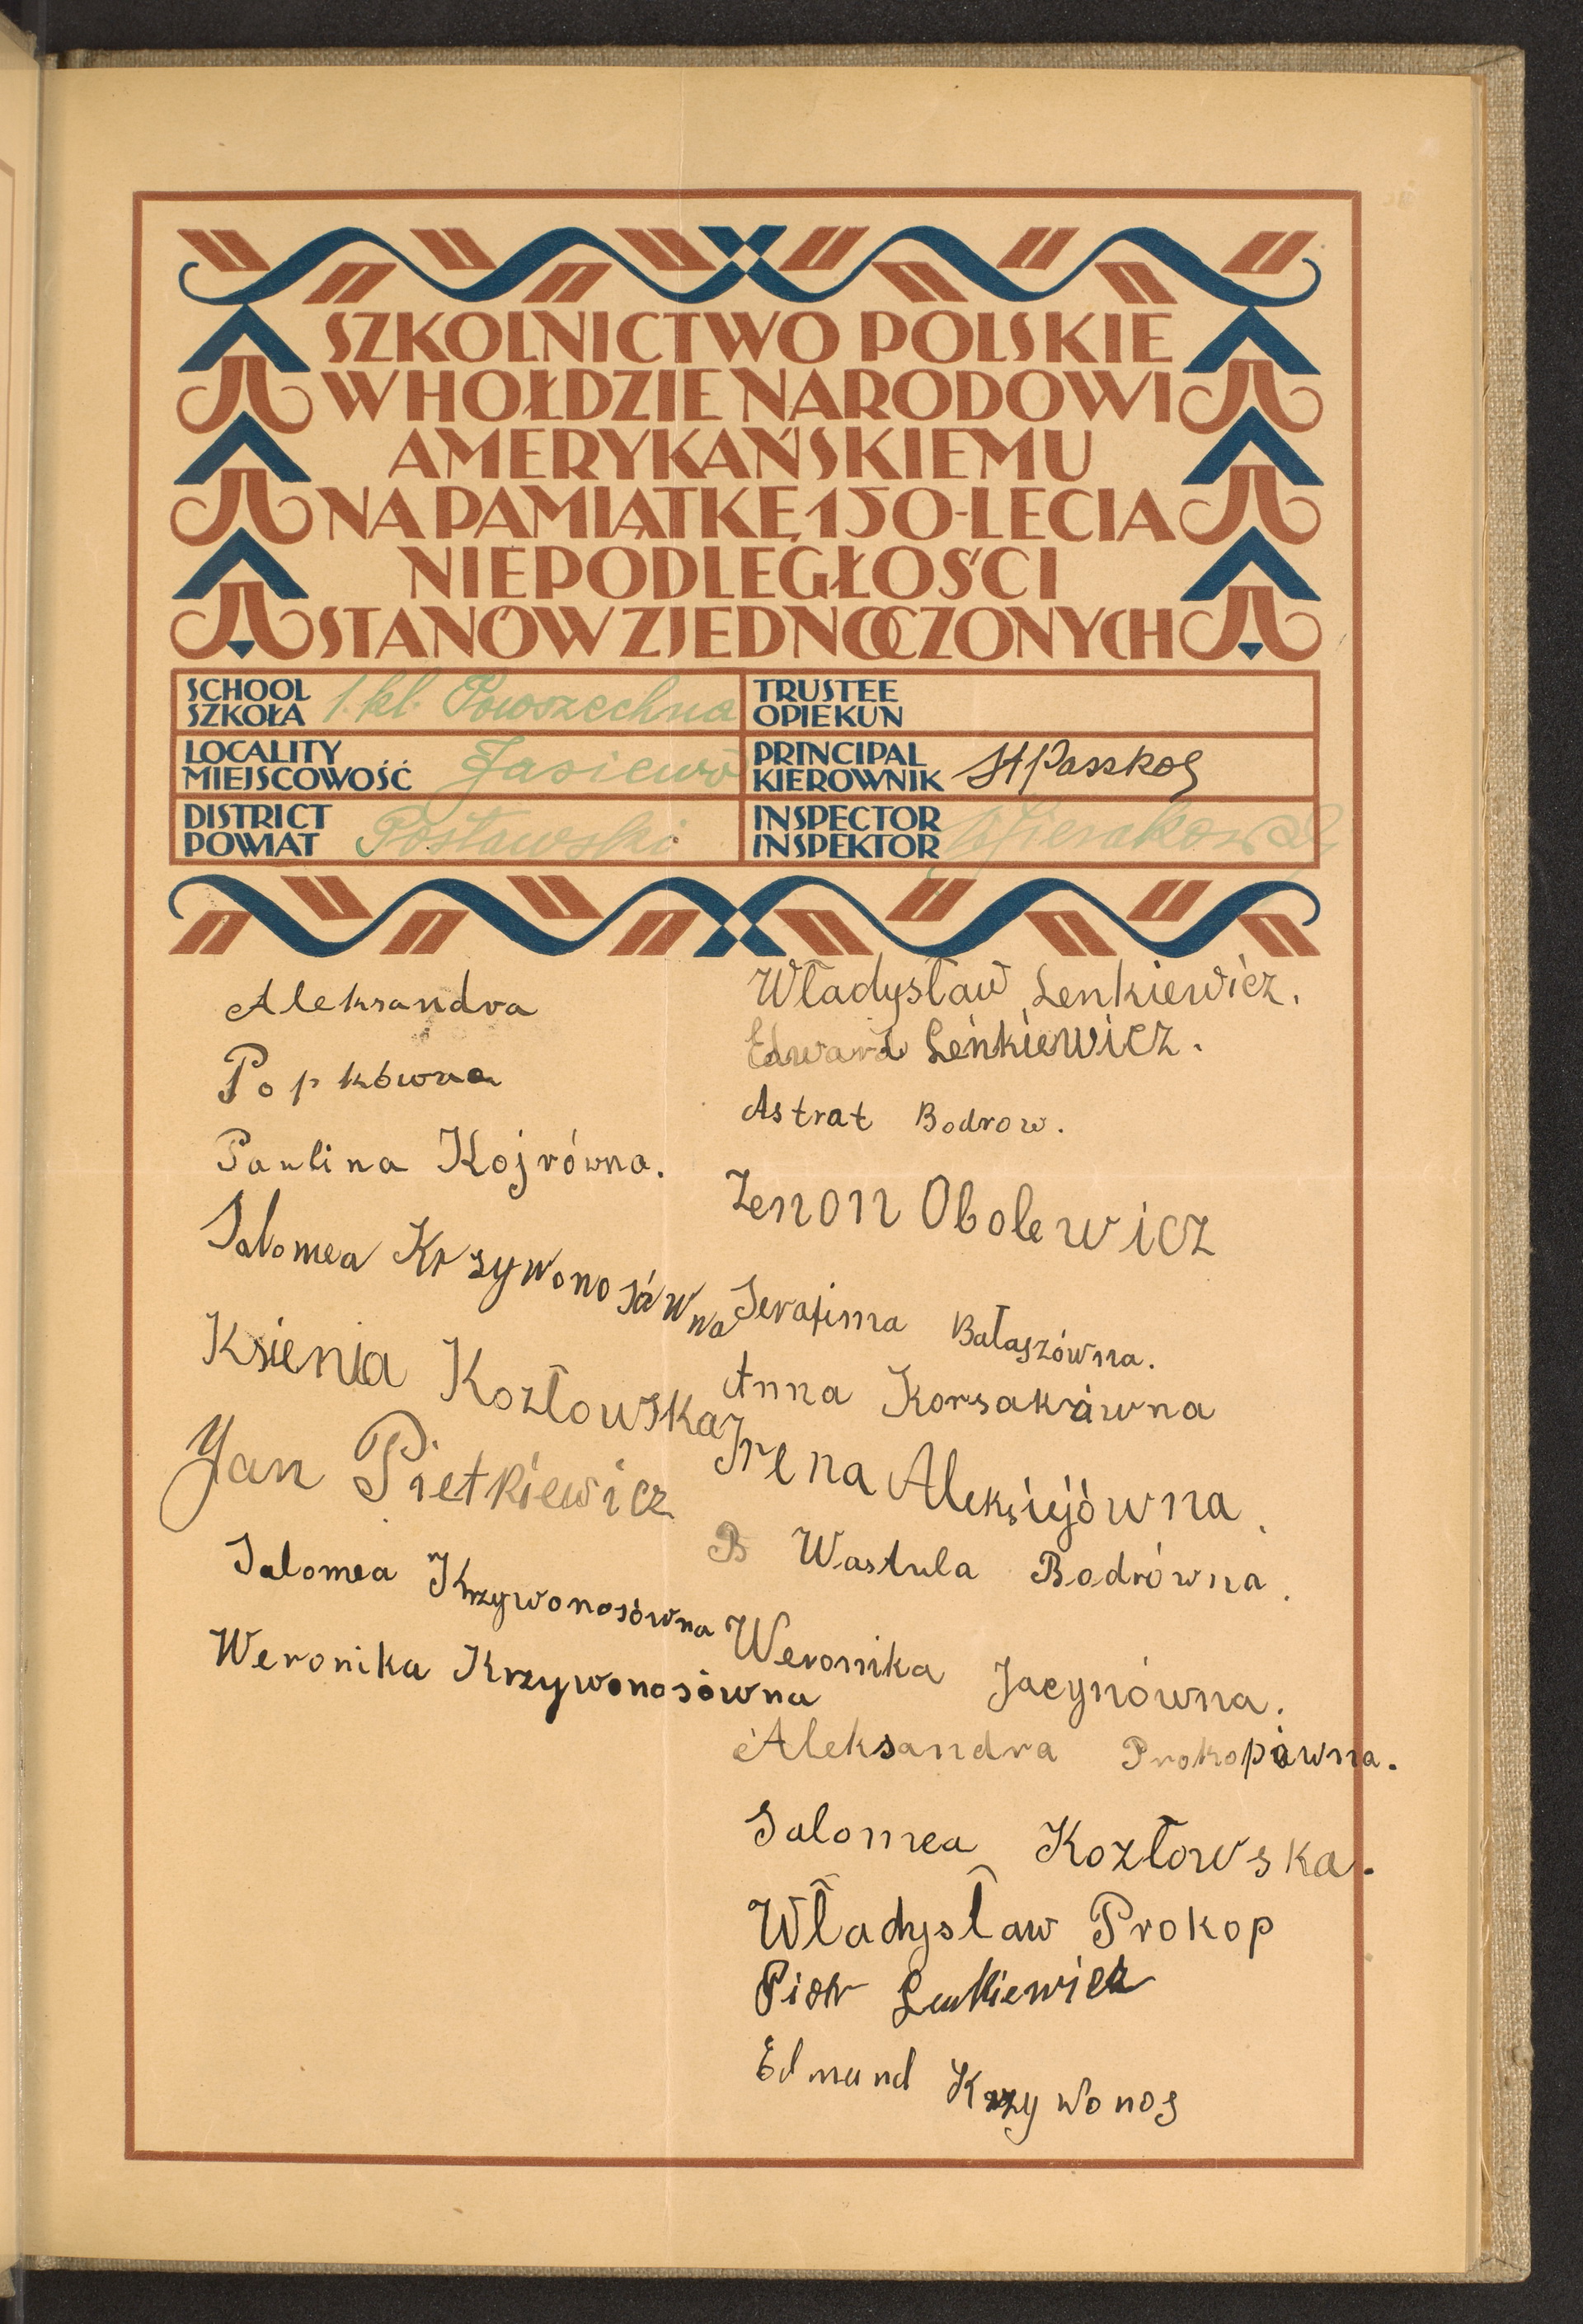 SZKOLNICTWO POLSKIE
W HOŁDZIE NARODOWI
AMERYKAŃSKIEMU
NA PAMIĄTKĘ 150-LECIA
NIEPODLEGŁOŚCI
STANÓW ZJEDNOCZONYCH
SCHOOL
SZKOŁA 1. kl. Powszechna
LOCALITY
MIEJSCOWOŚĆ Jasiewo
DISTRICT
POWIAT Postawski
TRUSTEE
OPIEKUN
PRINCIPAL
KIEROWNIK
INSPECTOR
INSPEKTOR
Aleksandra
Popkówna
Paulina Kojrówna.
Salomea Krzywonosówna
Ksienia Kozłowska
Jan Pietkiewicz
Salomea Krzywonosówna
Weronika Krzywonosówna
Władysław Lenkiewicz.
Edward Leńkiewicz.
Astrat Bodrow.
Zenon Obolewicz
Serafima Bałaszówna.
Anna Korsakówna
Irena Aleksiejówna.
B Wastula Bodrówna.
Weronika Jacynówna.
Aleksandra Prokopówna.
Salomea Kozłowska.
Władysław Prokop
Piotr Lenkiewicz
Edmund Krzywonos